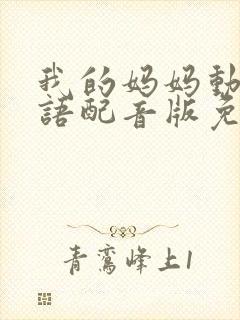 我的妈妈動
語配音版免
青鸞峰上1